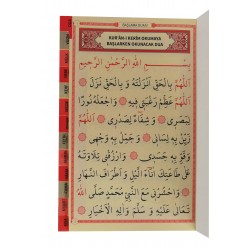 KUR'ÂN-I KERÎM OKUMAYA
BAŞLARKEN OKUNACAK DUA
بِسْمِ اللّٰهِ الرَّحْمٰنِ الرَّحِيمِ
اَللّٰهُمَّ بِالْحَقِّ اَنْزَلْتَهُ وَ بِالْحَقِّ نَزَلَ
اَللّٰهُمَّ عَظِّمْ رَغْبَتِى فِيهِ وَاجْعَلْهُ نُورًا
لِبَصَرِى وَ شِفَاءً لِصَدْرِى اَللّٰهُمَّ
زَيِّنْ بِهِ لِسَانِى وَ جَمِّلْ بِهِ وَجْهِى
وَ قَوِّ بِهِ جَسَدِى وَارْزُقْنِى تِلَاوَتَهُ
عَلٰى طَاعَتِكَ اٰنَاءَ الَّيْلِ وَ اَطْرَافَ النَّهَارِ
وَاحْشُرْنِى مَعَ النَّبِىِّ مُحَمَّدٍ صَلَّى اللّٰهُ
تَعَالٰى عَلَيْهِ وَ سَلَّمَ وَاٰلِهِ الْاَخْيَارِ